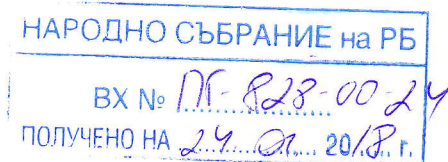 НАРОДНО СЪБРАНИЕ на РБ
ВХ № ПГ-828-00-24
ПОЛУЧЕНО НА 24. 01. 2018. г.